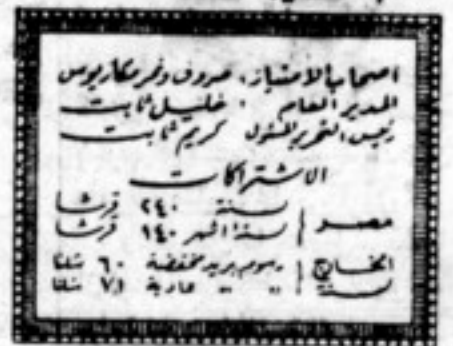 اصحاب الامتياز: صروف ونمر مكاريوس
المدير العام : خليل ثابت
رئيس التحرير المسئول كريم ثابت
الاشتراكات
مصر سنة ٢٤٠ قرشا
ستة اشهر ١٤٠ قرشا
الخارج رسوم بريد مخفضة ٦٠ شلنا
سنة " " عادية ٧٦ شلنا